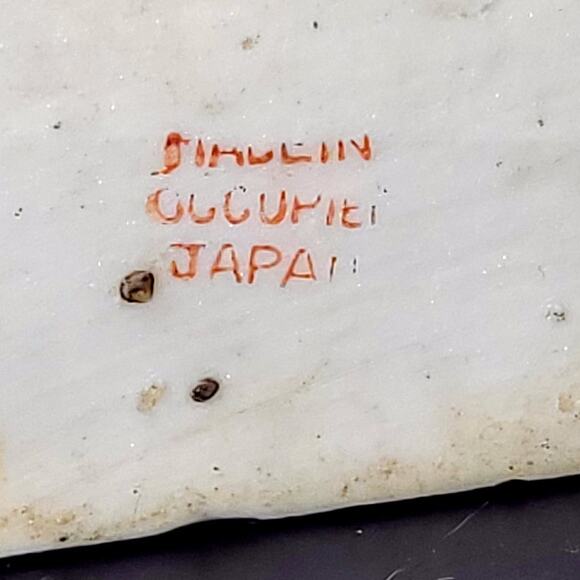 MADE IN
OCCUPIED
JAPAN